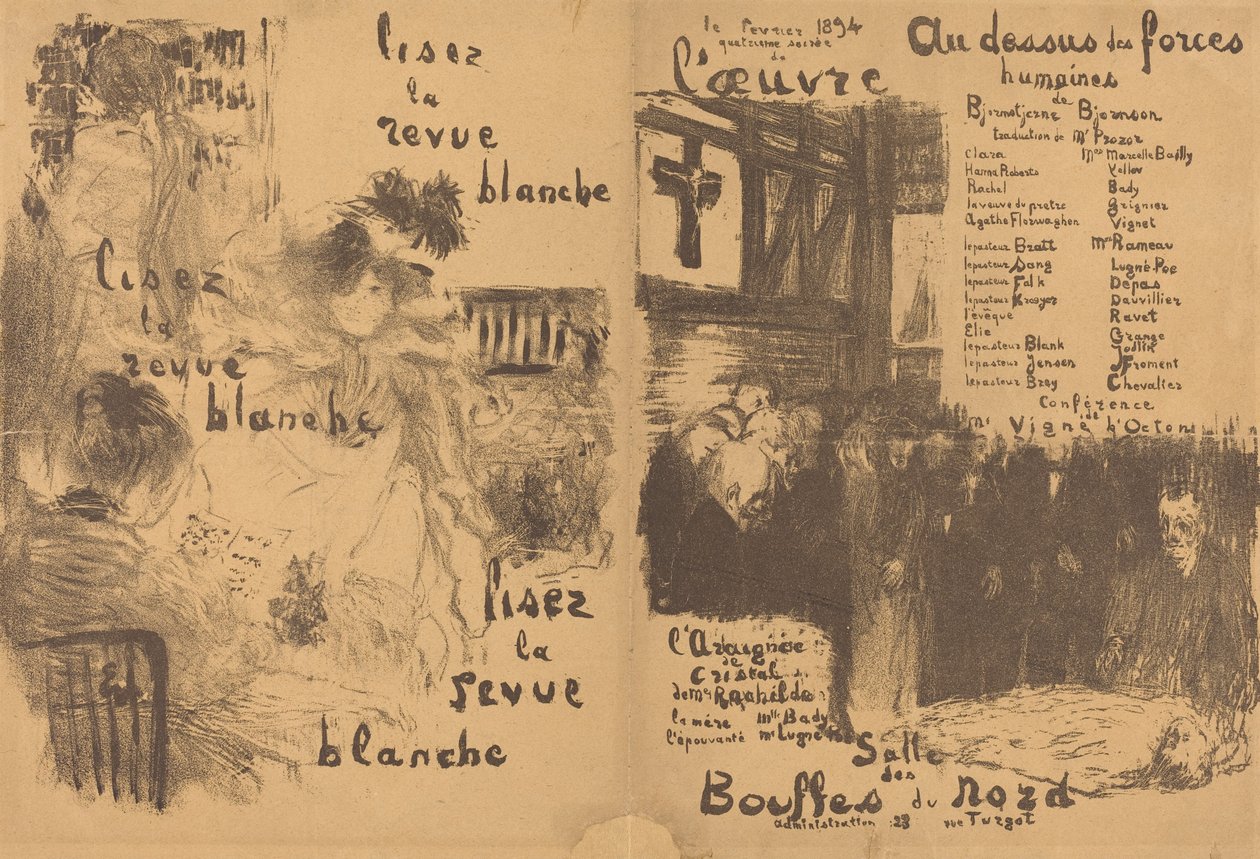 lisez
la
revue
blanche
lisez
la
revue
blanche
lisez
la
revue
blanche
le fevrier 1894
quatrieme soirée
de
l'œuvre
Au dessus des forces
humaines
de
Bjornstjerne Bjornson
traduction de Mr Prozor
Clara Mmes Marcelle Bailly
Hanna Roberts Yellov
Rachel Bady
la veuve du pretre Grignier
Agathe Florwaghen Vignet
le pasteur Bratt Mrs Rameau
le pasteur Sang Lugné-Poe
le pasteur Falk Depas
le pasteur Kroeyer Dauvillier
l'évêque Ravet
Elie Grange
le pasteur Blank Jodlik
le pasteur Jensen J Froment
le pasteur Brey Chevalier
Conférence
de
Mr Vigné d'Octon
l'Araignée
de
Cristal
de Me Rachilde
la mère Mlle Bady
l'épouvanté Mr Lugné Poe
Salle
des
Bouffes du Nord
administration : 23 rue Turgot